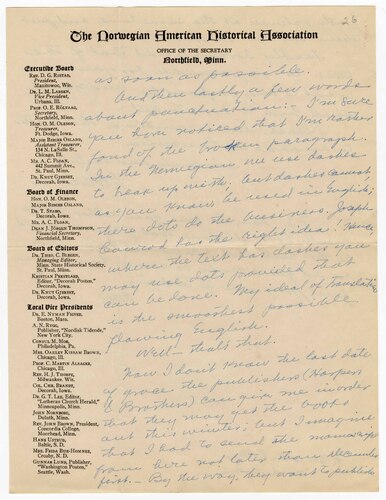 26
The Norwegian American Historical Association
OFFICE OF THE SECRETARY
Northfield, Minn.
Executive Board
REV. D. G. RISTAD,
President,
Manitowoc, Wis.
DR. L. M. LARSON,
Vice President,
Urbana, Ill.
PROF. O. E. RÖLVAAG,
Secretary,
Northfield, Minn.
HON. O. M. OLESON,
Treasurer,
Ft. Dodge, Iowa.
MAJOR BIRGER OSLAND,
Assistant Treasurer,
134 N. LaSalle St.,
Chicago, Ill.
MR. A. C. FLOAN,
442 Summit Ave.,
St. Paul, Minn.
DR. KNUT GJERSET,
Decorah, Iowa.
Board of Finance
HON. O. M. OLESON,
MAJOR BIRGER OSLAND,
DR. T. STABO,
Decorah, Iowa.
MR. A. C. FLOAN,
DEAN J. JÖRGEN THOMPSON,
Financial Secretary,
Northfield, Minn.
Board of Editors
DR. THEO. C. BLEGEN,
Managing Editor,
Minn. State Historical Society,
St. Paul, Minn.
KRISTIAN PRESTGARD,
Editor, "Decorah Posten,"
Decorah, Iowa.
DR. KNUT GJERSET,
Decorah, Iowa.
Local Vice Presidents
DR. E. NYMAN FIGVED,
Boston, Mass.
A. N. RYGG,
Publisher, "Nordisk Tidende,"
New York City.
CONSUL M. MOE,
Philadelphia, Pa.
MRS. OAKLEY KISSAM BROWN,
Chicago, Ill.
PROF. C. MARTIN ALSAGER,
Chicago, Ill.
REV. H. J. THORPE,
Milwaukee, Wis.
COL. CHR. BRANDT,
Decorah, Iowa.
DR. G. T. LEE, Editor,
"Lutheran Church Herald,"
Minneapolis, Minn.
JOHN MOENNING,
Duluth, Minn.
REV. JOHN BROWN, President,
Concordia College,
Moorhead, Minn.
HANS USTRUD,
Baltic, S. D.
MRS. FRIDA BUE-HOMNES,
Crosby, N. D.
GUNNAR LUND, Publisher,
"Washington Posten,"
Seattle, Wash.
as soon as possible.
And then lastly a few words
about punctuation: - I'm sure
you have noticed that I'm rather
fond of the broken paragraph.
In the Norwegian we use dashes
to break up with, but dashes cannot,
as you know be used in English;
there dots do the business. Joseph
Conrad has the right idea! Hence
where the text has dashes you
may use dots provided that
can be done. My ideal of translation
is the smoothest possible
flowing English.
Well - that's that.
Now I don't know the last date
of grace the publishers (Harper
& Brothers) can give me in order
that they may get the book
out this winter; but I imagine
that I had to send the manuscript
from here not later than December
first. - By the way, they want to publish